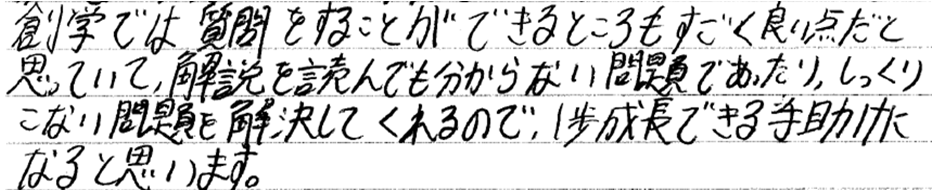 創学では質問をすることができるところもすごく良い点だと
思っていて,解説を読んでも分からない問題であったり,しっくり
こない問題を解決してくれるので,1歩成長できる手助けに
なると思います。